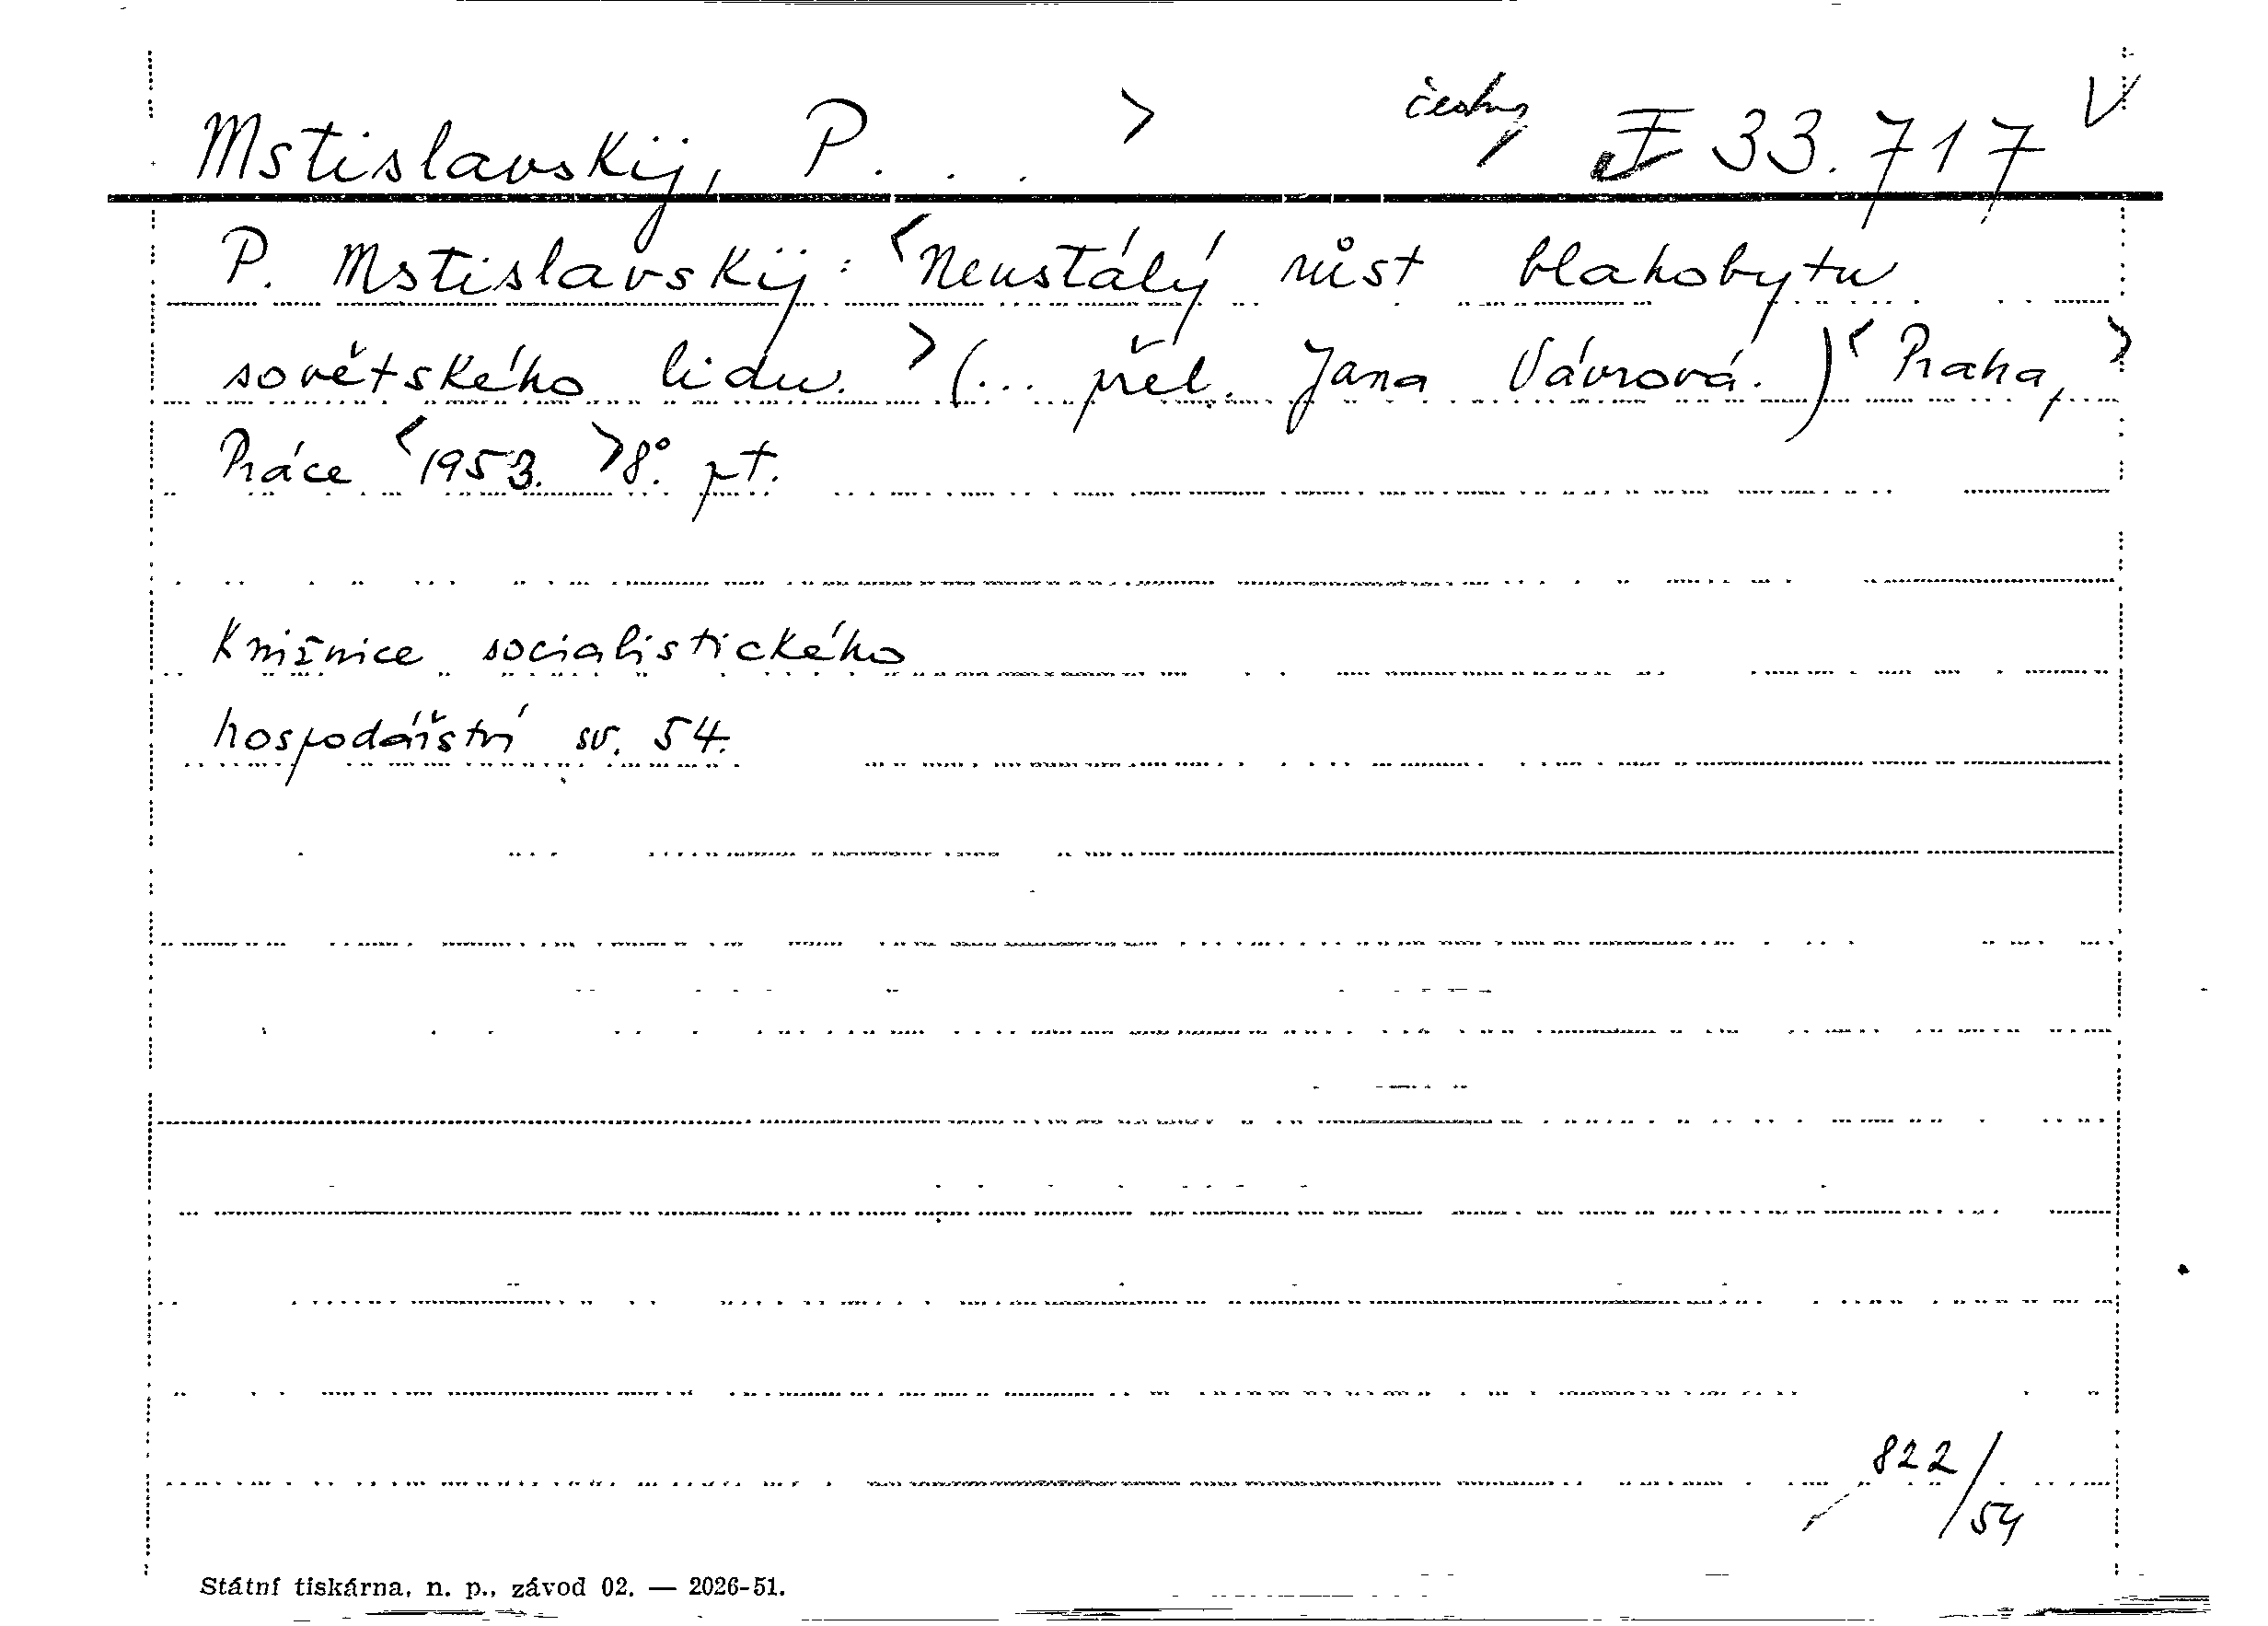 Mstislavskij, P. . . > česky I 33.717 V
P. Mstislavskij: <Neustálý růst blahobytu
sovětského lidu. > (... přel. Jana Vávrová.) < Praha, >
Práce <1953. > 8°. pt.
Knižnice socialistického
hospodářství sv. 54.
822/54
Státní tiskárna, n. p., závod 02. — 2026-51.